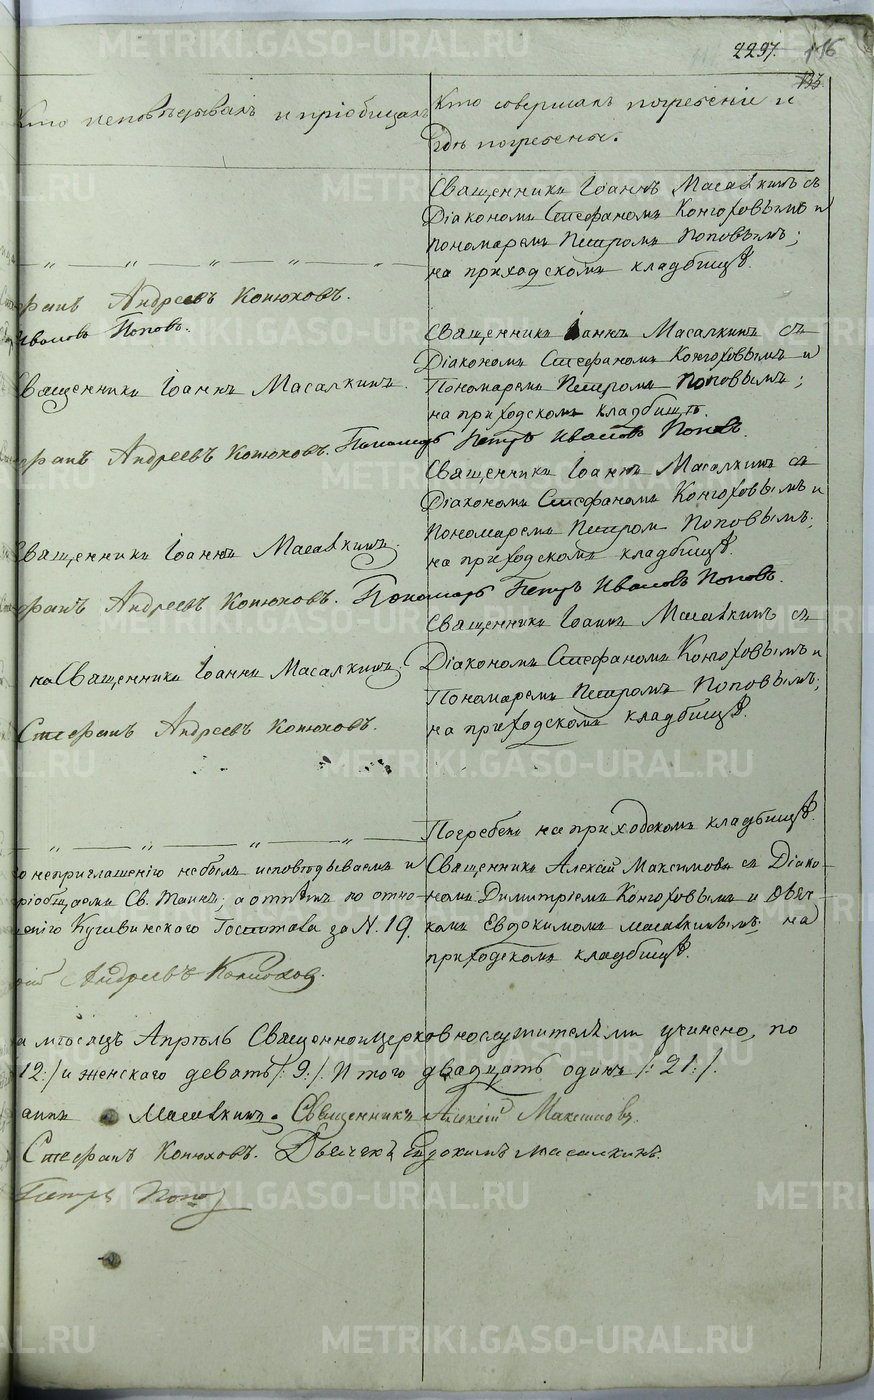 2297. 116
133.
Кто исповѣдывалъ и пріобщалъ
Кто совершалъ погребеніе и
гдѣ погребены.
Священникъ Іоаннъ Масалкинъ съ
Діакономъ Стефаномъ Конюховымъ и
пономаремъ Петромъ Поповымъ;
на приходскомъ кладбищѣ.
— „ — „ — „ — „ — „ —
фанъ Андреевъ Конюховъ.
Ивановъ Поповъ.
Священникъ Іоаннъ Масалкинъ съ
Діакономъ Стефаномъ Конюховымъ и
Священникъ Іоаннъ Масалкинъ.
Пономаремъ Петромъ Поповымъ;
на приходскомъ кладбищѣ.
фанъ Андреевъ Конюховъ. Пономарь Петръ Ивановъ Поповъ.
Священникъ Іоаннъ Масалкинъ съ
Діакономъ Стефаномъ Конюховымъ и
Пономаремъ Петром Поповымъ;
Священникъ Іоаннъ Масалкинъ.
на приходскомъ кладбищѣ.
фанъ Андреевъ Конюховъ. Пономарь Петръ Ивановъ Поповъ.
Священникъ Іоаннъ Масалкинъ съ
на Священникъ Іоаннъ Масалкинъ.
Діакономъ Стефаномъ Конюховымъ и
Пономаремъ Петромъ Поповымъ;
Стефанъ Андреевъ Конюховъ.
на приходскомъ кладбищѣ.
Погребенъ на приходскомъ кладбищѣ.
— „ — „ — „ — „ —
по неприглашенію небылъ исповѣдываемъ и
пріобщаемъ Св. Таинъ; а отпѣтъ по отно-
шенію Кушвинскаго Госпиталя за N. 19.
Священникъ Алексій Максимовъ съ Діако-
номъ Димитріемъ Конюховымъ и дьяч-
комъ Евдокимомъ Масалкинымъ; на
приходскомъ кладбищѣ.
Андреевъ Конюховъ.
а мѣсяцъ Апрѣль Священноицерковнослужителѣми учинено, по
12:/ и женскаго девять /: 9:/. Итого двадцать одинъ /: 21:/.
аннъ Масалкинъ. Священникъ Алексій Максимовъ.
Стефанъ Конюховъ. Дьячекъ Евдокимъ Масалкинъ.
Петръ Попов
METRIKI.GASO-URAL.RU